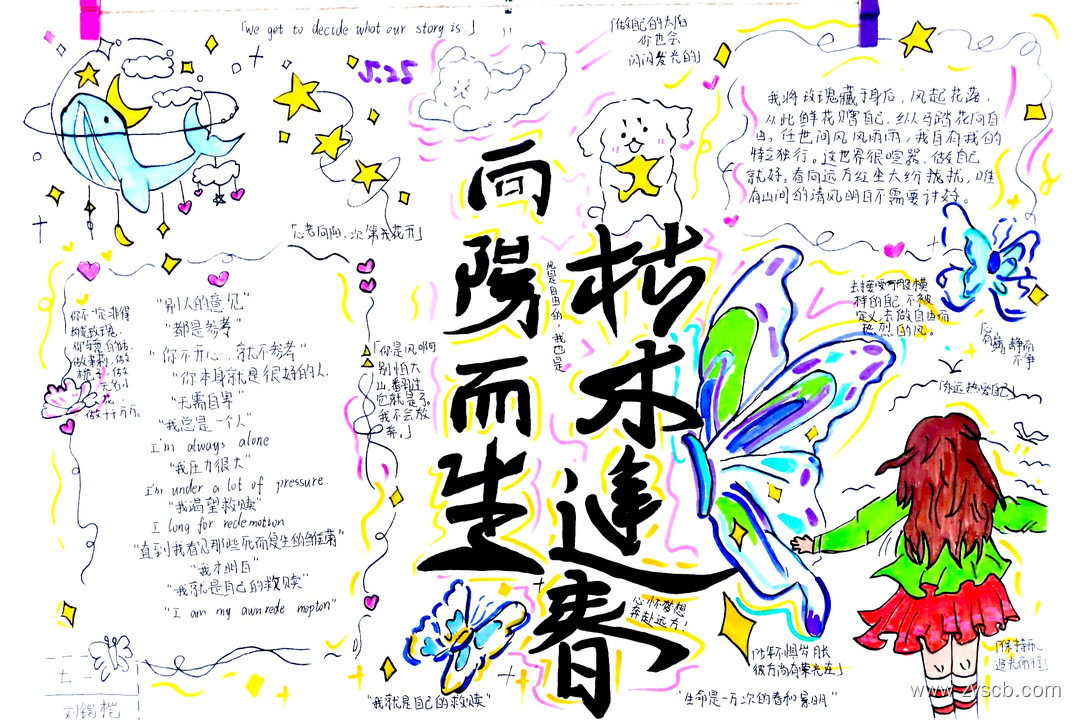 「we get to decide what our story is.」
5.25
「做自己的太阳
你也会
闪闪发光的」
我将玫瑰藏于身后，风起花落，
从此鲜花赠自己，纵马踏花向自
由。任世间风风雨雨，我自有我的
特立独行。这世界很喧嚣，做自己
就好。看向远方红尘太纷扰扰，唯
有山间的清风明日不需要讨好。
「心若向阳，次第花开」
向阳而生
枯木逢春
风是自由的，我也是
"别人的意见"
"都是参考"
"你不开心，就不参考"
"你本身就是很好的人.
"无需自卑"
"我总是一个人"
I'm always alone
"我压力很大"
I'm under a lot of pressure.
"我渴望救赎"
I long for redemotion
"直到我看见那些死而复生的雏菊"
"我才明白"
"我就是自己的救赎"
"I am my own rede mption"
「你是风啊
别怕大
山,翻过
它就是了。
我不会放
弃。」
去接受所有模
样的自己,不被
定义,去做自由而
热烈的风。
静而
不争
「永远热爱自己」
心怀梦想
奔赴远方！
「少年不惧岁月长
彼方尚有荣光在」
「保持热爱
追光而行」
"我就是自己的救赎"
"生命是一万次的春和景明"
www.zyscb.com